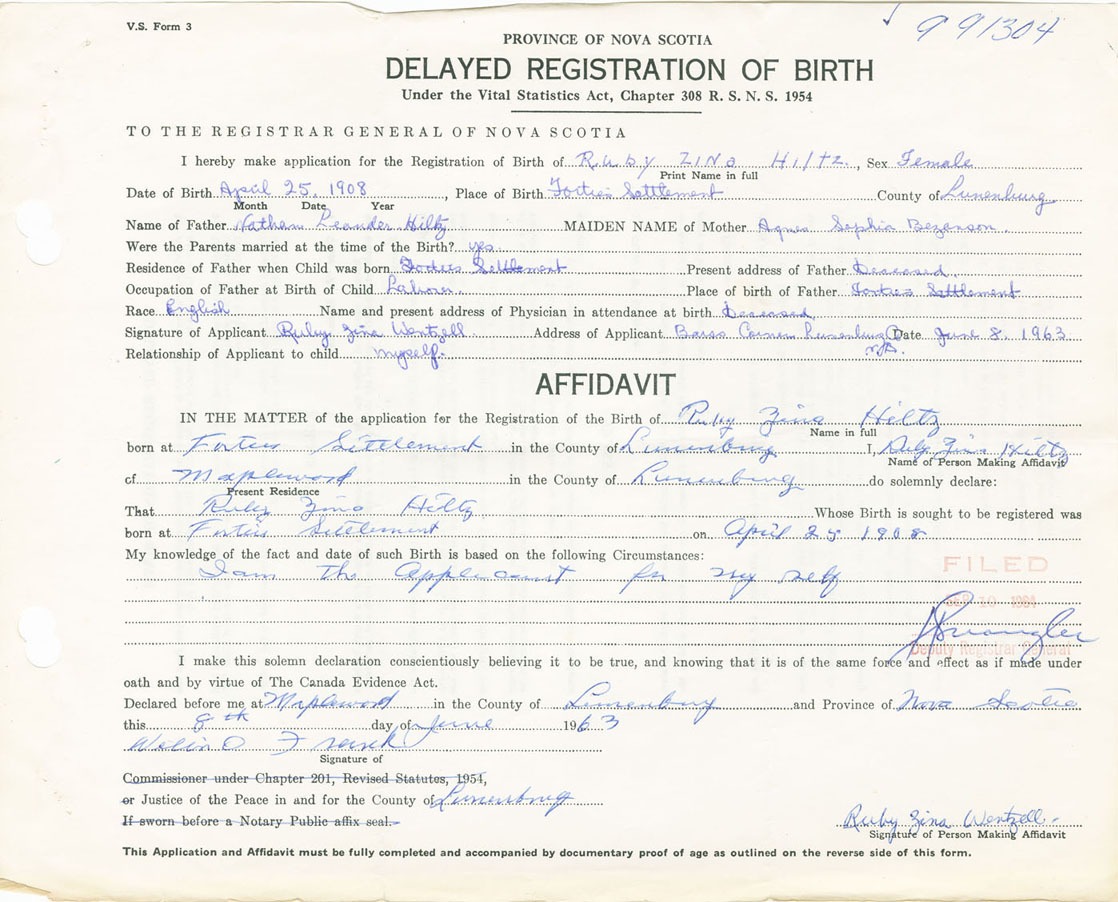 V.S. Form 3
991304
PROVINCE OF NOVA SCOTIA
DELAYED REGISTRATION OF BIRTH
Under the Vital Statistics Act, Chapter 308 R. S. N. S. 1954
TO THE REGISTRAR GENERAL OF NOVA SCOTIA
I hereby make application for the Registration of Birth of Ruby Zina Hiltz, Sex Female
Print Name in full
Date of Birth April 25, 1908, Place of Birth Forties Settlement County of Lunenburg
Month Date Year
Name of Father Nathan Leander Hiltz MAIDEN NAME of Mother Agnes Sophia Bezanson
Were the Parents married at the time of the Birth? yes
Residence of Father when Child was born Forties Settlement Present address of Father Deceased
Occupation of Father at Birth of Child Laborer Place of birth of Father Forties Settlement
Race English Name and present address of Physician in attendance at birth Deceased
Signature of Applicant Ruby Zina Wentzell Address of Applicant Barss Corner Lunenburg Co Date June 8, 1963
N.S.
Relationship of Applicant to child myself.
AFFIDAVIT
IN THE MATTER of the application for the Registration of the Birth of Ruby Zina Hiltz
Name in full
born at Forties Settlement in the County of Lunenburg I, Ruby Zina Hiltz
Name of Person Making Affidavit
of Maplewood in the County of Lunenburg do solemnly declare:
Present Residence
That Ruby Zina Hiltz Whose Birth is sought to be registered was
born at Forties Settlement on April 25 1908
My knowledge of the fact and date of such Birth is based on the following Circumstances:
I am the Applecanst for my self
FILED
SEP 10 1964
Deputy Registrar General
I make this solemn declaration conscientiously believing it to be true, and knowing that it is of the same force and effect as if made under
oath and by virtue of The Canada Evidence Act.
Declared before me at Maplewood in the County of Lunenburg and Province of Nova Scotia
this 8th day of June 1963
Frank
Signature of
Commissioner under Chapter 201, Revised Statutes, 1954,
or Justice of the Peace in and for the County of Lunenburg
If sworn before a Notary Public affix seal.
Ruby Zina Wentzell
Signature of Person Making Affidavit
This Application and Affidavit must be fully completed and accompanied by documentary proof of age as outlined on the reverse side of this form.